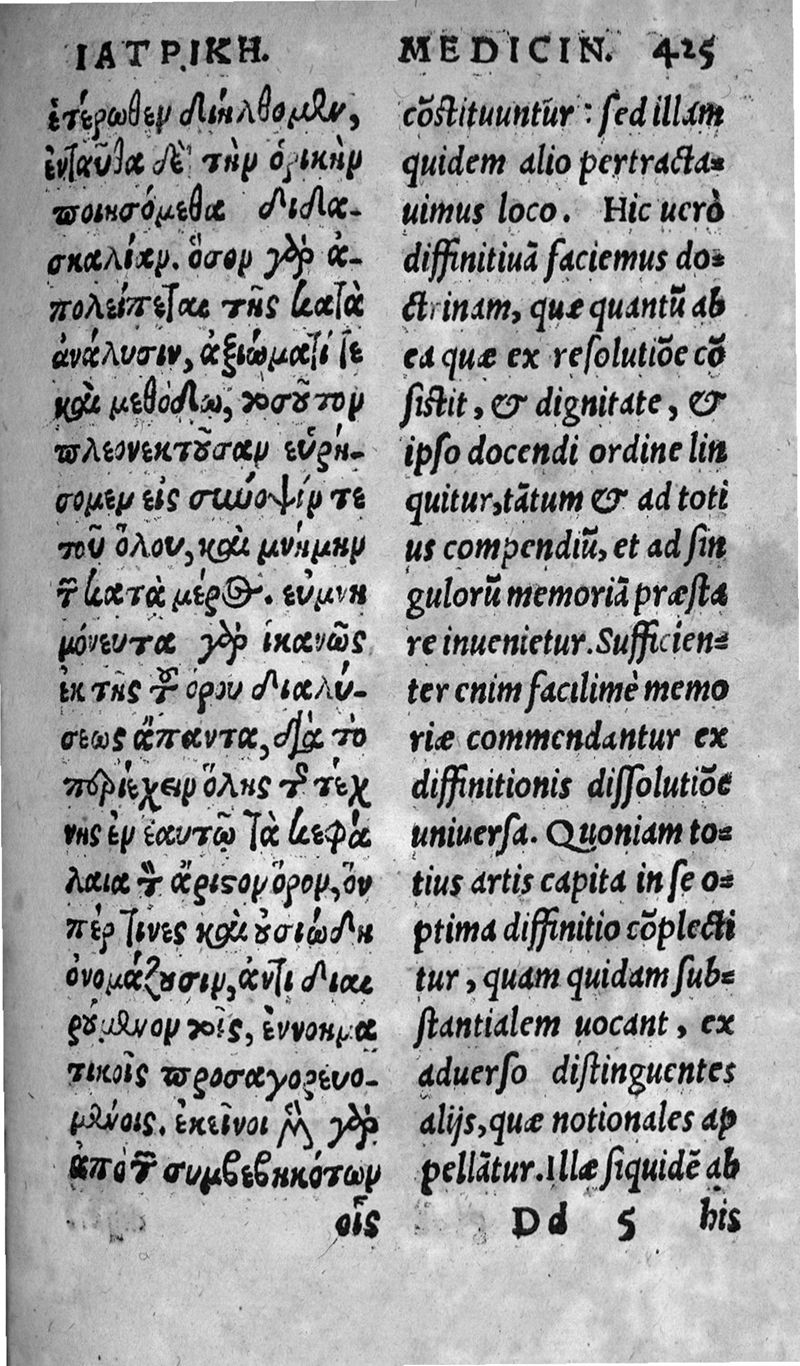 ΙΑΤΡΙΚΗ.
ἑτέρωθεν διήλθομεν,
ἐνταῦθα δὲ τὴν ὁρικὴν
ποιησόμεθα διδα-
σκαλίαν. ὅσον γὰρ ἀ-
πολείπεται τῆς κατὰ
ἀνάλυσιν, ἀξιώματί τε
καὶ μεθόδῳ, τοσοῦτον
πλεονεκτοῦσαν εὑρή-
σομεν εἰς σύνοψίν τε
τοῦ ὅλου, καὶ μνήμην
τῶν κατὰ μέρος. εὐμνη
μόνευτα γὰρ ἱκανῶς
ἐκ τῆς τοῦ ὅρου διαλύ-
σεως ἅπαντα, διὰ τὸ
περιέχειν ὅλης τῆς τέχ
νης ἐν ἑαυτῷ τὰ κεφά
λαια τὸν ἄριστον ὅρον, ὅν
πέρ τινες καὶ οὐσιώδη
ὀνομάζουσιν, ἀντιδιαι
ρούμενον τοῖς, ἐννοημα
τικοῖς προσαγορευο-
μένοις. ἐκεῖνοι μὲν γὰρ
ἀπὸ τῶν συμβεβηκότων
οἷς
MEDICIN. 425
cōstituuntur : sed illam
quidem alio pertracta=
uimus loco. Hic uerò
diffinitiuā faciemus do=
ctrinam, quæ quantū ab
ea quæ ex resolutiōe cō
sistit, & dignitate, &
ipso docendi ordine lin
quitur, tātum & ad toti
us compendiū, et ad sin
gulorū memoriā præsta
re inuenietur. Sufficien=
ter enim facilimè memo
riæ commendantur ex
diffinitionis dissolutiōe
uniuersa. Quoniam to=
tius artis capita in se o=
ptima diffinitio cōplecti
tur, quam quidam sub=
stantialem uocant, ex
aduerso distinguentes
alijs, quæ notionales ap
pellātur. Illæ siquidē ab
Dd 5 his